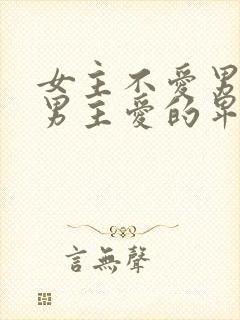 女主不愛男
男主愛的卑
言無聲